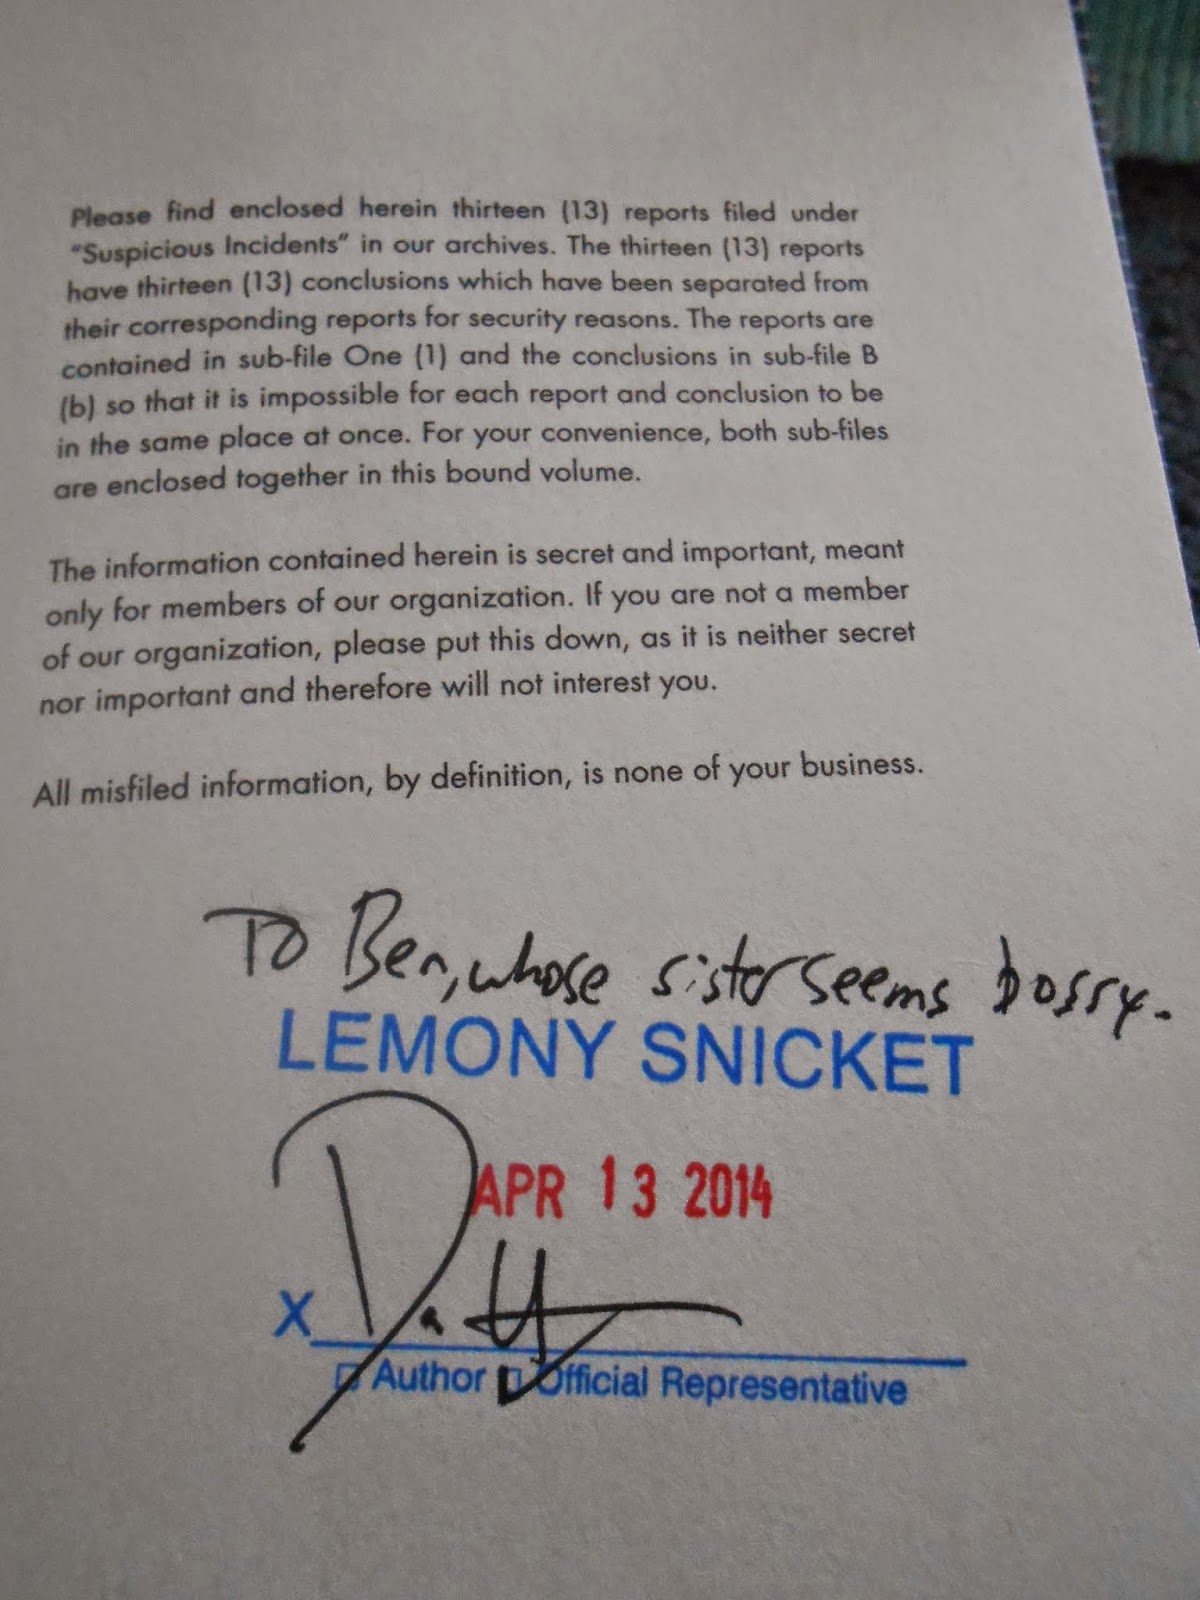 Please find enclosed herein thirteen (13) reports filed under
"Suspicious Incidents" in our archives. The thirteen (13) reports
have thirteen (13) conclusions which have been separated from
their corresponding reports for security reasons. The reports are
contained in sub-file One (1) and the conclusions in sub-file B
(b) so that it is impossible for each report and conclusion to be
in the same place at once. For your convenience, both sub-files
are enclosed together in this bound volume.
The information contained herein is secret and important, meant
only for members of our organization. If you are not a member
of our organization, please put this down, as it is neither secret
nor important and therefore will not interest you.
All misfiled information, by definition, is none of your business.
To Ben, whose sister seems bossy.
LEMONY SNICKET
APR 13 2014
X
Author Official Representative